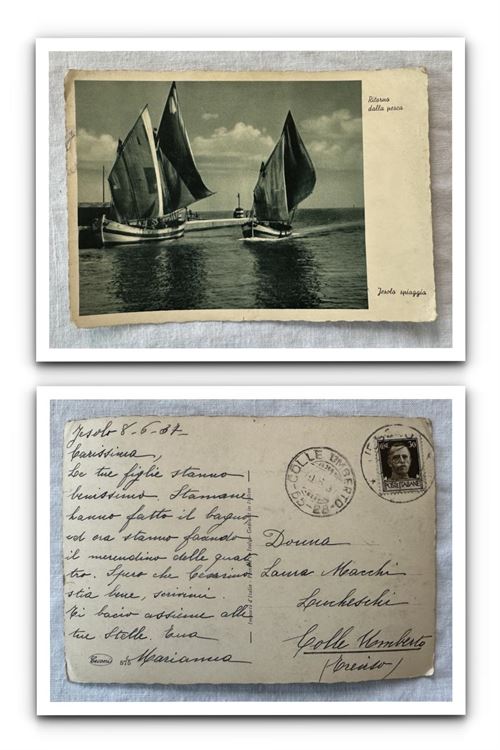 Ritorno
dalla pesca
Jesolo spiaggia
Jesolo 8-6-37
Carissima,
Le tue figlie stanno
benissimo. Stamane
hanno fatto il bagno
ed ora stanno facendo
il merendino delle quat
tro. Spero che Cesarino
stia bene, scrivimi.
Ti bacio assieme alle
tue Stelle. Tua
Marianna
COLLE UMBERTO
POSTE ITALIANE
Donna
Laura Macchi
Lucheschi
Colle Umberto
(Treviso)
575